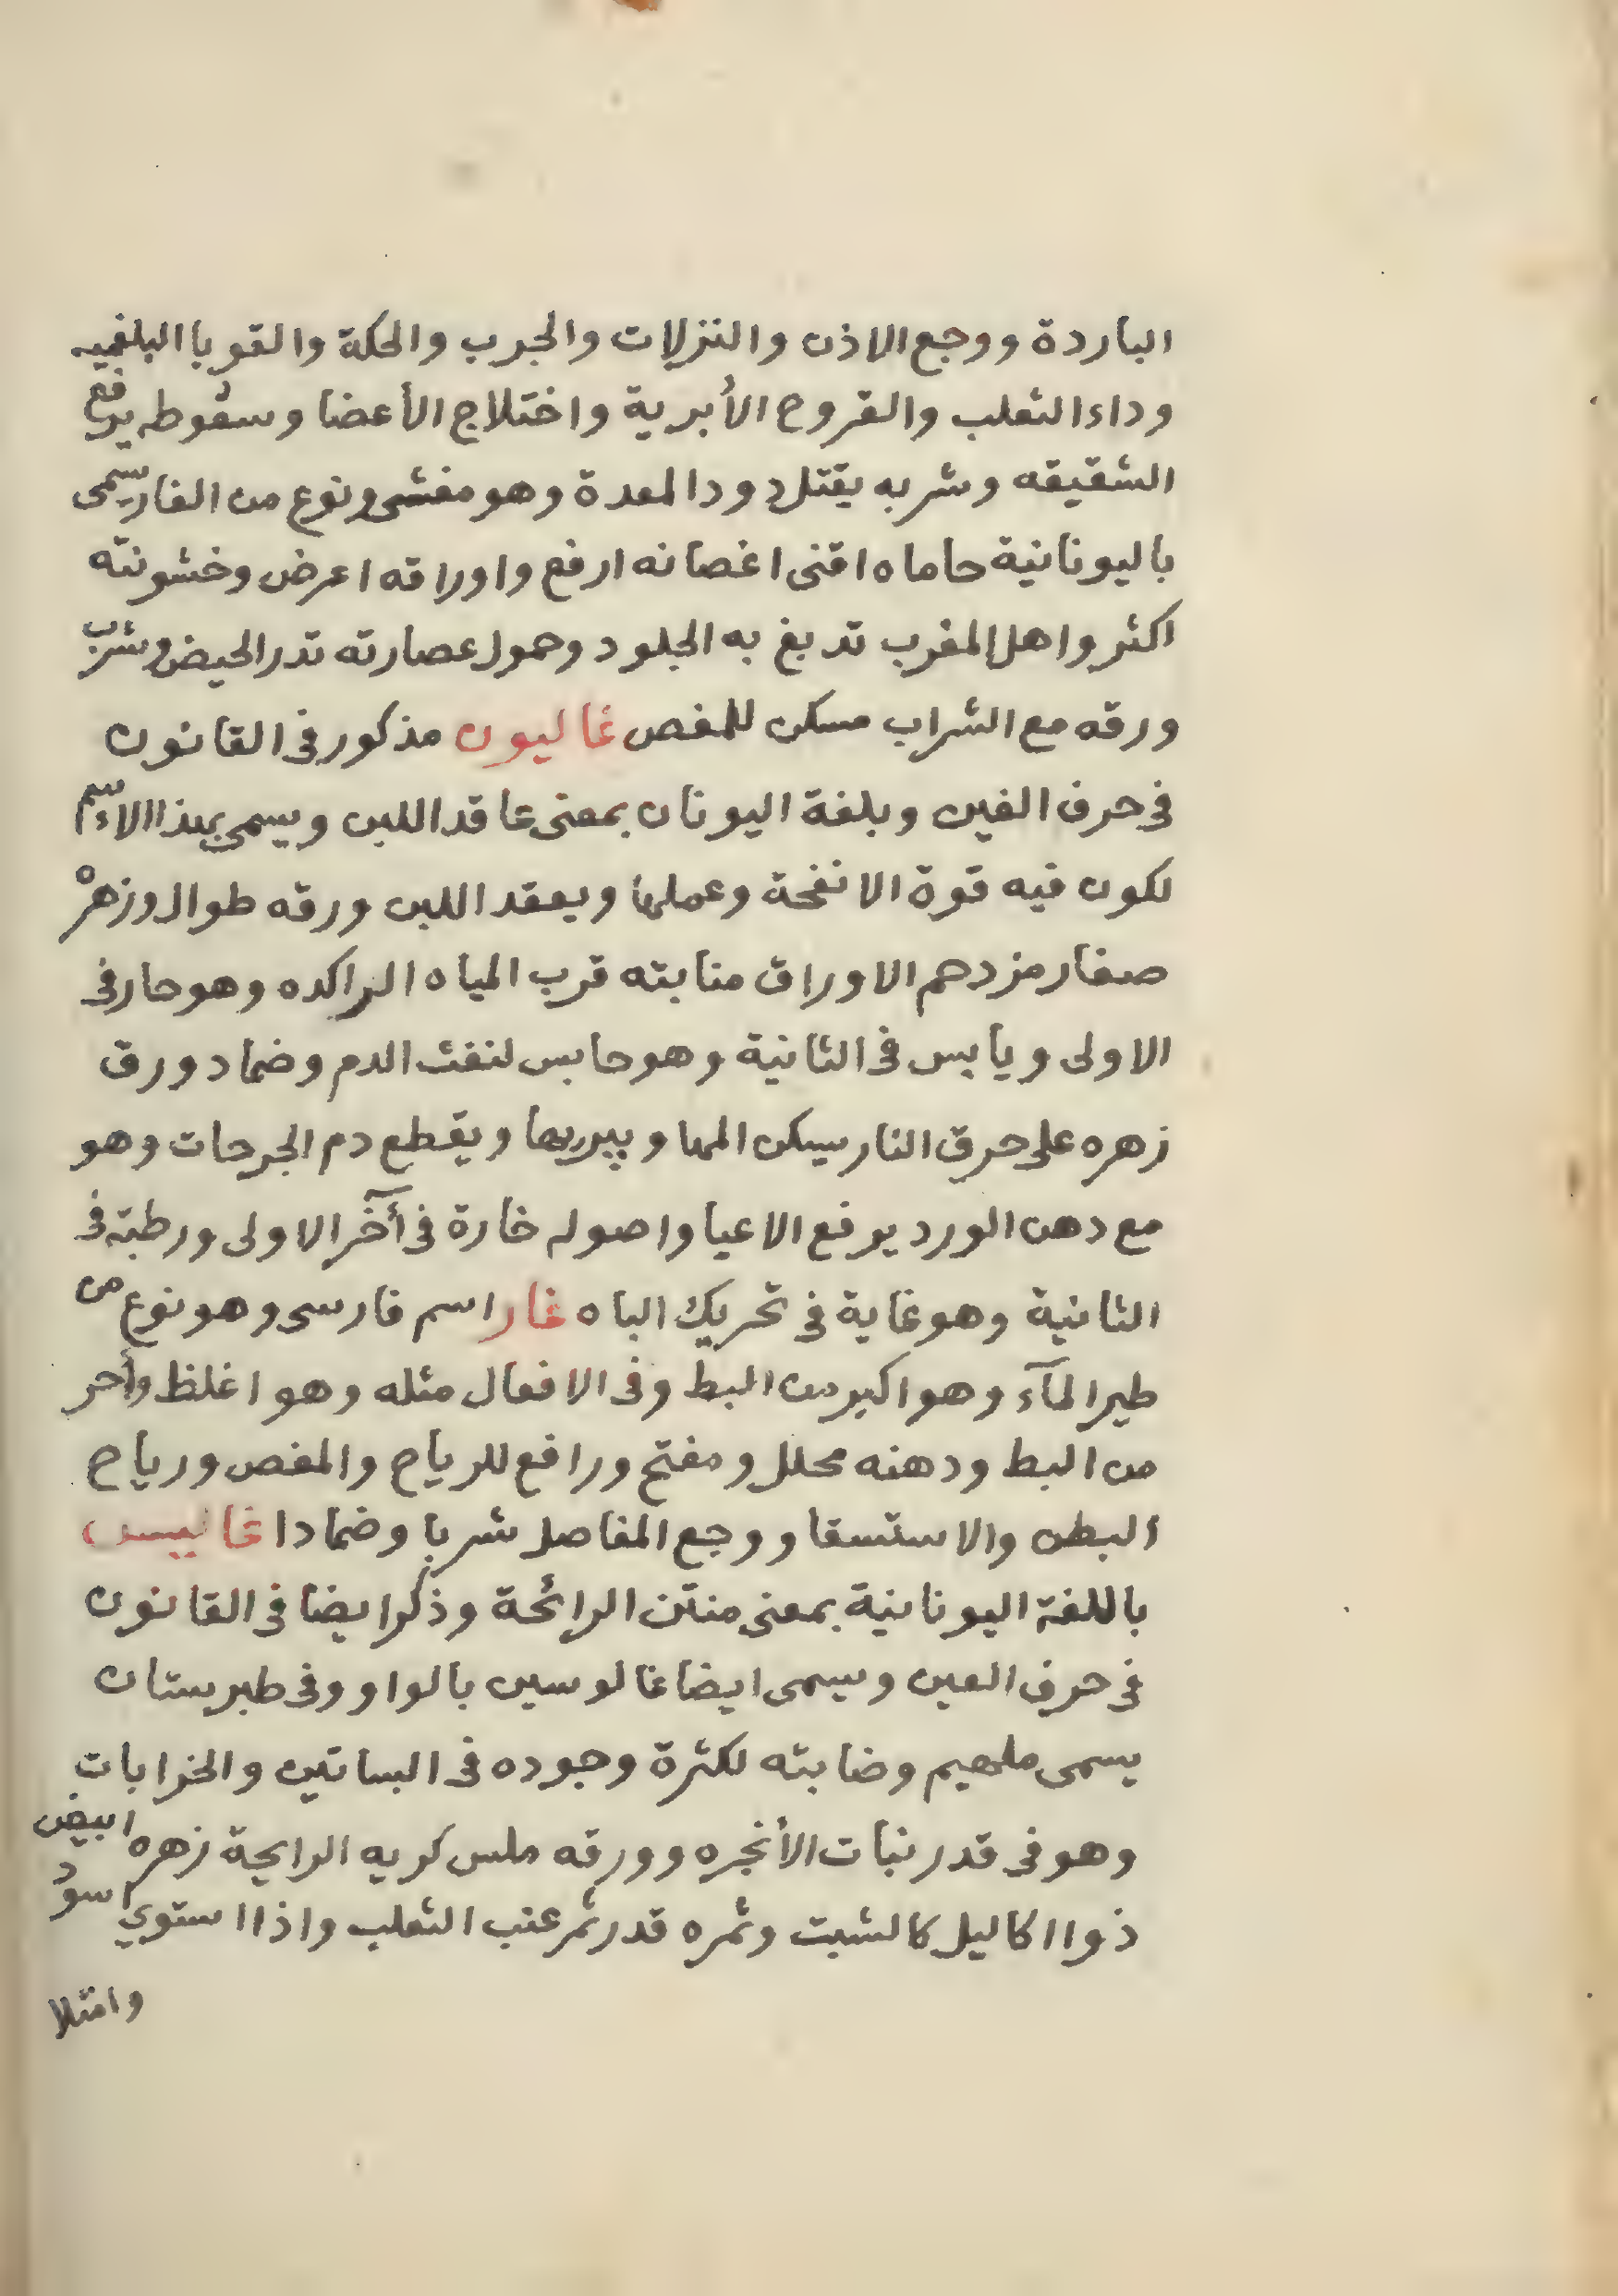 الباردة ووجع الاذن والنزلات والجرب والحكة والقوبا البلغميه
وداء الثعلب والقروح الأبرية واختلاج الأعضا وسقوطه يرفع
الشقيقه وشربه يقتل دود المعدة وهو مغشى ونوع من الغار يسمى
باليونانية حاماه اقنى اغصانه ارفع واوراقه اعرض وخشونته
اكثر واهل المغرب تدبغ به الجلود وحمول عصارته تدر الحيض وشرب
ورقه مع الشراب مسكن للمغص غاليون مذكور فى القانون
فى حرف الغين وبلغة اليونان بمعنى عاقد اللبن ويسمى بهذا الاسم
لكون فيه قوة الانفحة وعملها ويعقد اللبن ورقه طوال وزهره
صغار مزدحم الاوراق منابته قرب المياه الراكده وهو حار فى
الاولى ويابس فى الثانية وهو حابس لنفث الدم وضماد ورق
زهره على حرق النار يسكن المها ويبريها ويقطع دم الجرحات وهو
مع دهن الورد يرفع الاعيا واصوله خارة فى آخر الاولى ورطبة فى
الثانية وهو غاية فى تحريك الباه غار اسم فارسى وهو نوع من
طير المآء وهو اكبر من البط وفى الافعال مثله وهو اغلظ وأحر
من البط ودهنه محلل ومفتح ورافع للرياح والمغص ورياح
البطن والاستسقا ووجع المفاصل شربا وضمادا غاليبس
باللغة اليونانية بمعنى منتن الرائحة وذكر ايضا فى القانون
فى حرف العين ويسمى ايضا غالوسين بالواو وفى طبرستان
يسمى ملهيم وضابته لكثرة وجوده فى البساتين والخرابات
وهو فى قدر نبات الأنجره وورقه ملس كريه الرايحة زهره ابيض
ذو اا كاليل كالشبت وثمره قدر ثمر عنب الثعلب واذا استوي اسود
وامتلا